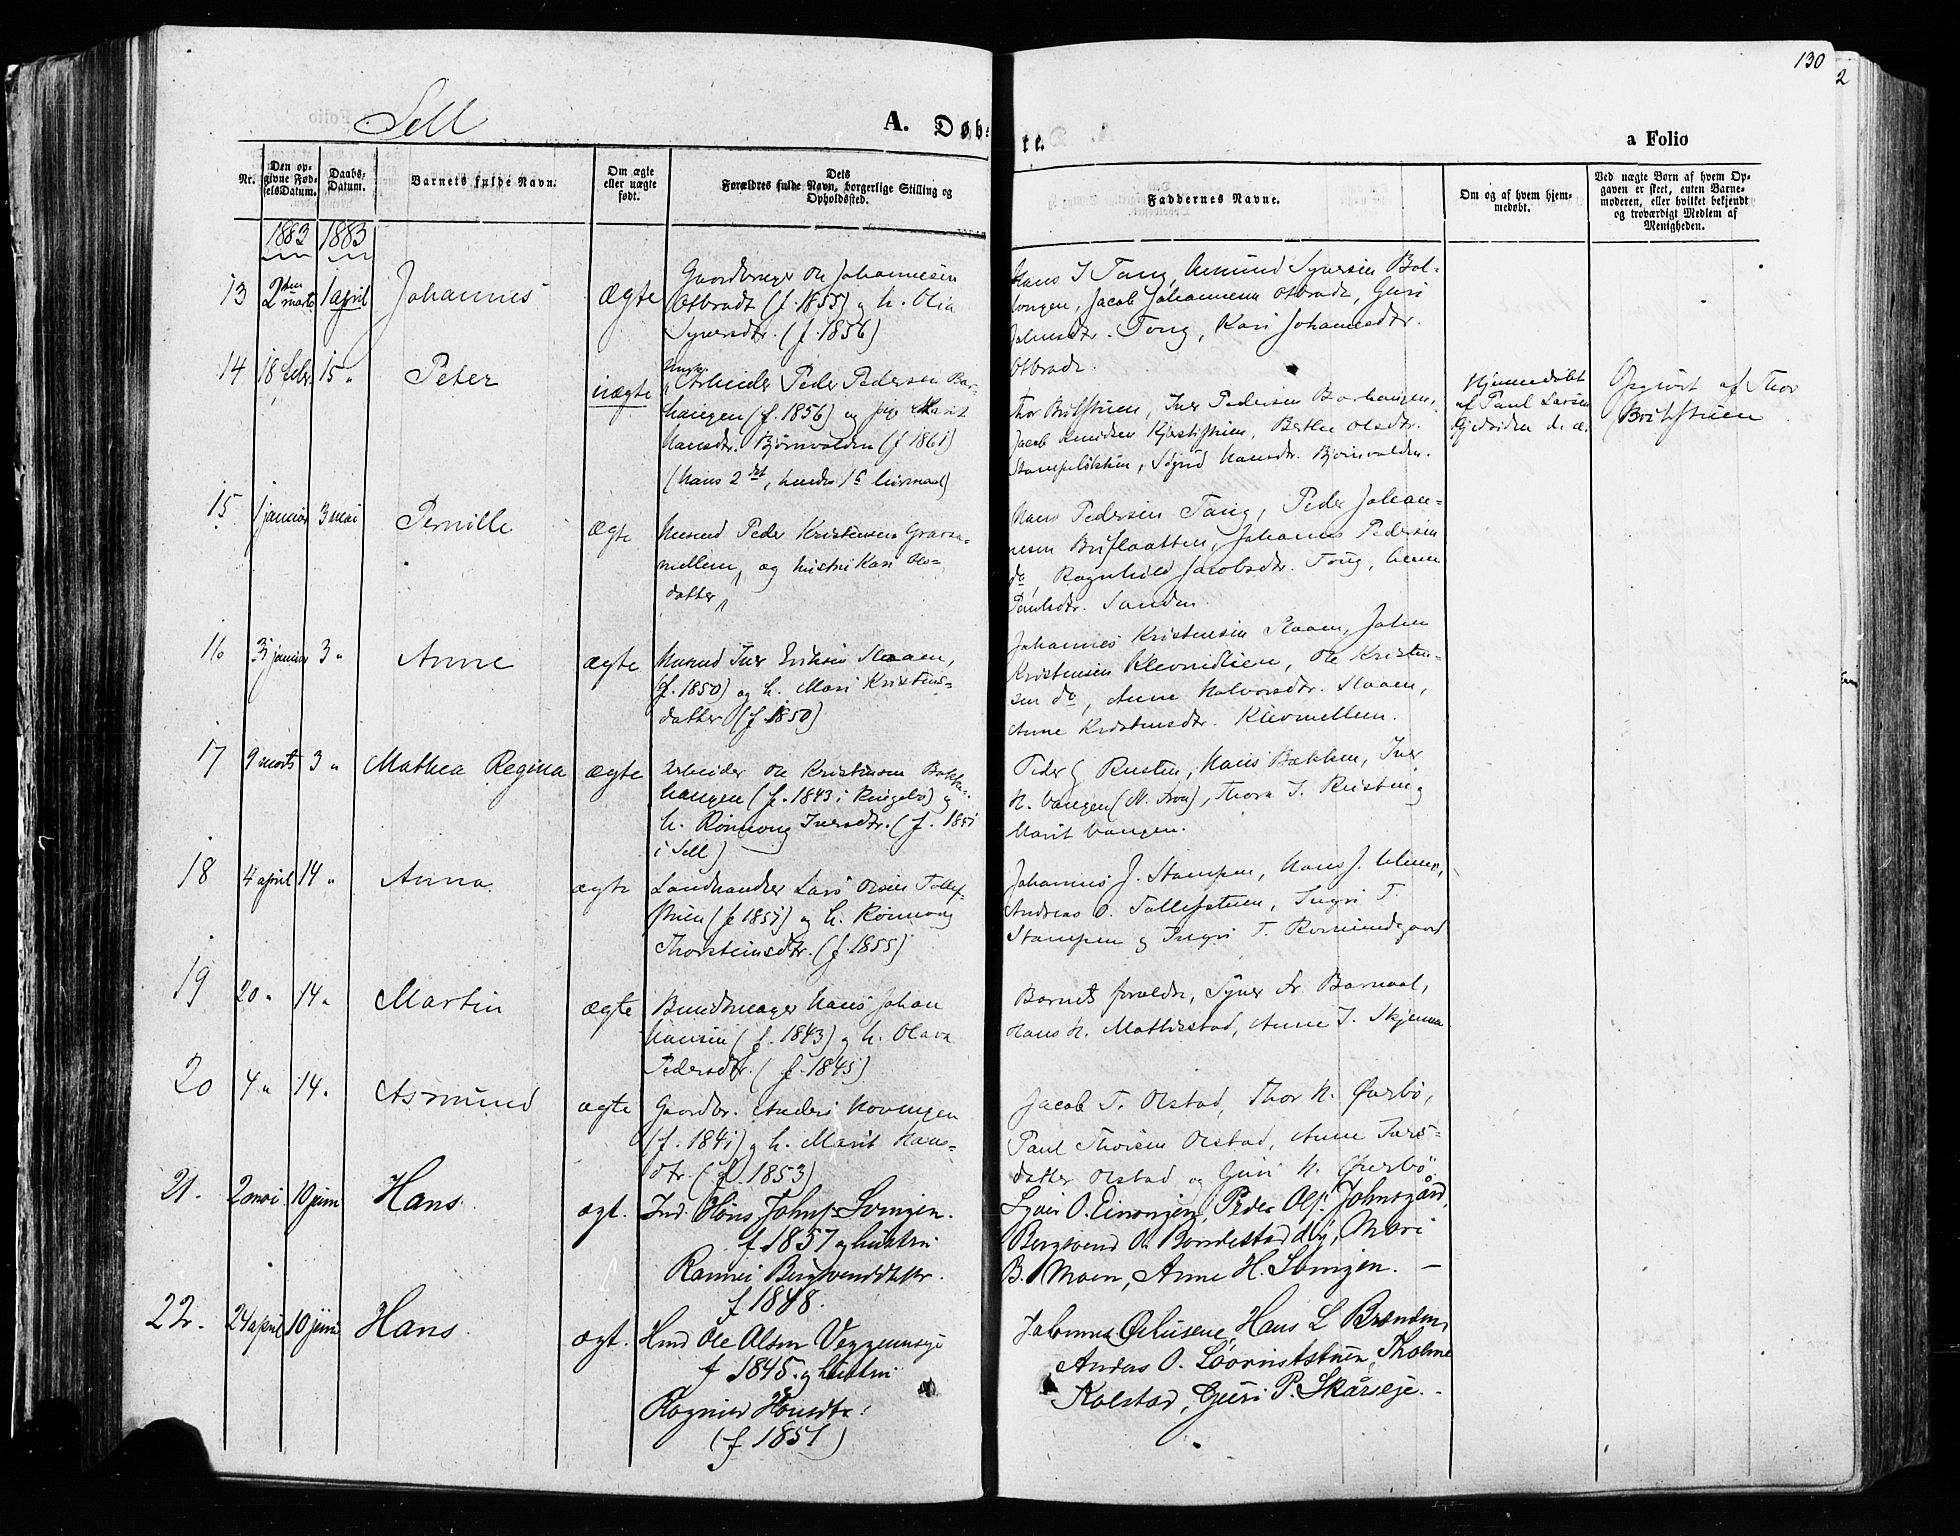 130
2
Sell
A. Døb-
te.
a Folio
Nr.
Den op-
givne Fød-
selsDatum.
Daabs-
Datum.
Barnets fulde Navn.
Om ægte
eller uægte
født.
Dets
Forældres fulde Navn, borgerlige Stilling og
Opholdssted.
Faddernes Navne.
Om og af hvem hjem-
medøbt.
Ved uægte Børn af hvem Op-
gaven er skeet, enten Barne-
moderen, eller hvilket bekjendt
og troværdigt Medlem af
Menigheden.
1883 1883
13 2den marts 1 april Johannes ægte
Gaardbruger Ole Johannesen
Otbradt (f. 1855) og h. Olia
Syversdtr. (f. 1856)
Hans I Tong, Amund Syversen
Jacob Johannesen Otbradt, Guri
Johnsdtr. Tong, Kari Johannesdtr.
Otbradt.
14 18 Febr. 15 " Peter uægte
Arbeider Peder Pedersen Bar-
haugen (f. 1856) og pige Marit
Hansdtr. Bjørnvolden (f 1861)
(hans 2det, hendes 1ste leiermaal)
Thor Brustuen, Iver Pedersen Barhaugen,
Jacob Knudsen Kjerstistuen, Berthe Olsdtr.
Stampeløkken, Sigrid Hansdtr. Bjørnvolden.
Hjemmedøbt
af Paul Larsen
Opgivet af Thor
15 1 januar 3 mai Pernille ægte
Husmd Peder Kristensen Gravsa-
mellem, og hustru Kari Ols-
datter
Hans Pedersen Tong, Peder Johan-
nesen Bruflaatten, Johannes Pedersen
do, Ragnhild Jacobsdtr. Tong,
Paulsdtr. Sanden.
16 31 januar 3 " Anne ægte
Husmd Iver Eriksen Slaaen,
(f. 1850) og h. Mari Kristens-
datter (f. 1850)
Johannes Kristensen Slaaen, John
Kristensen Klevmidlien, Ole Kristen-
sen do, Anne Halvorsdtr. Slaaen,
Anne Kristensdtr. Klevmellem.
17 9 marts 3 " Mathea Regina ægte
Arbeider Ole Kristensen Bakke-
haugen (f. 1843 i Ringebo) og
h. Rønnoug Iversdtr. (f. 1851
i Sell)
Peder G Rusten, Hans Bakken, Iver
H. Vangen (N. Fron), Thora I. Rusten og
Marit Vangen.
18 4 april 14 " Anna ægte
Landhandler Lars Olsen Tollef-
stuen (f. 1851) og h. Rønnoug
Thorsteinsdtr. (f. 1855)
Johannes J. Stampen, Hans J. Ulmen,
Andreas O. Tollefstuen, Ingri T.
Stampen og Ingri T. Romundgaard
19 20 " 14 " Martin ægte
Bundtmager Hans Johan
Hansen (f. 1843) og h. Olava
Pedersdtr. (f. 1845)
Barnets forældre, Syver Fr. Barnaal,
Hans H. Mathisstad, Anne I. Skjenna
20 4 " 14 " Asmund ægte
Gaardbr. Anders Hovengen
(f. 1841) og h. Marit Hans-
dtr. (f. 1853)
Jacob T. Olstad, Thor H. Øverbø,
Paul Thoresen Olstad, Anne Iars-
datter Olstad og Guri H. Øverbø
21. 2 mai 10 juni Hans. ægt.
Ind. Hans Johns. Svingen.
f. 1857 og hustru
Rannei Bergsvendsdatter.
f 1848.
Syver O. Einangen, Peder Ols. Johnsgård,
Bergsvend O. Bondestad, Mari
B. Moen, Anne H. Svingen. —
22. 24 april 10 juni Hans. ægt.
Hmd Ole Olsen Veggemseje
f 1845 og hustru
Ragnild Hansdtr.
(f 1851)
Johannes Øihusene, Hans L Brenden,
Anders O. Tholine
Kolstad, Guri P. Skårseje.